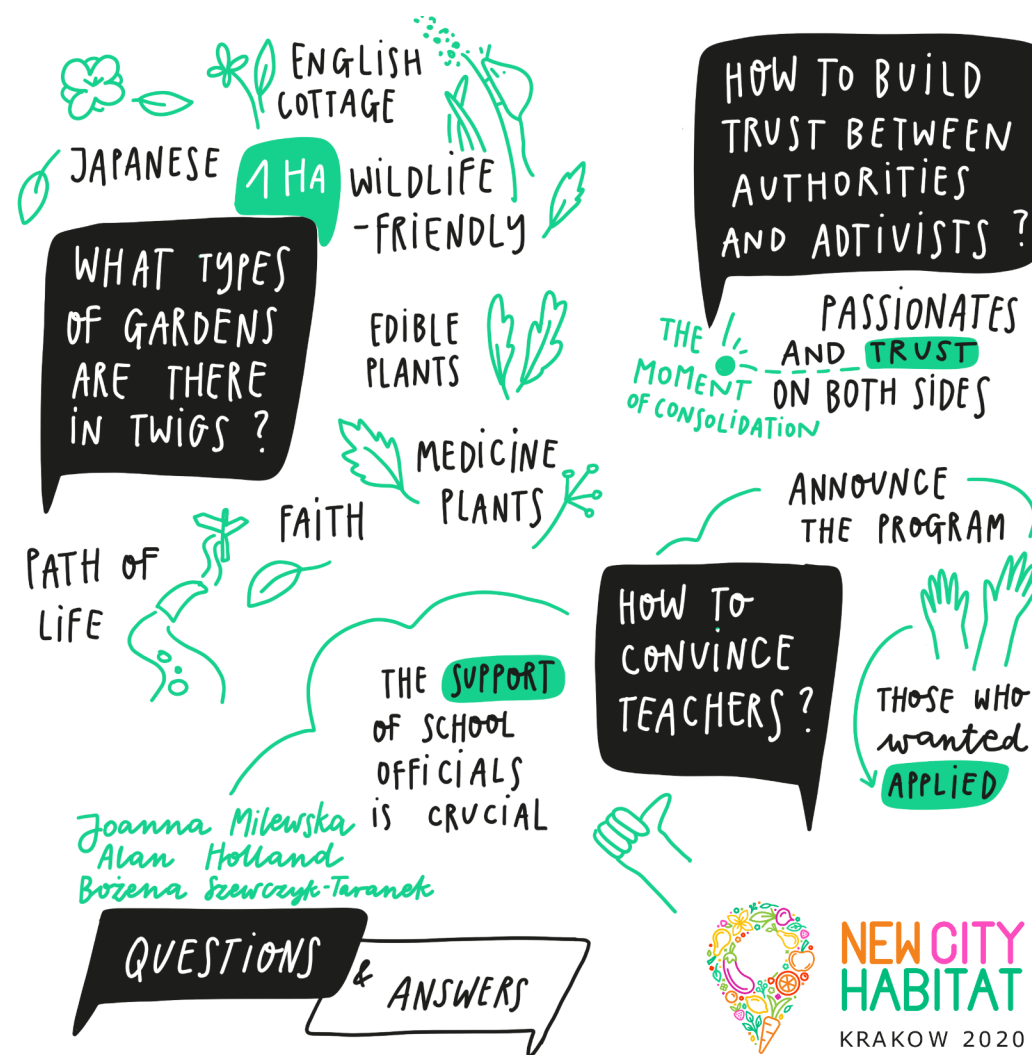 ENGLISH
COTTAGE
JAPANESE
1 HA
WILDLIFE
-FRIENDLY
WHAT TYPES
OF GARDENS
ARE THERE
IN TWIGS ?
EDIBLE
PLANTS
MEDICINE
PLANTS
FAITH
PATH OF
LIFE
HOW TO BUILD
TRUST BETWEEN
AUTHORITIES
AND ADTIVISTS ?
THE
MOMENT
OF CONSOLIDATION
PASSIONATES
AND TRUST
ON BOTH SIDES
ANNOUNCE
THE PROGRAM
HOW TO
CONVINCE
TEACHERS ?
THOSE WHO
wanted
APPLIED
THE SUPPORT
OF SCHOOL
OFFICIALS
IS CRUCIAL
Joanna Milewska
Alan Holland
Bożena Szewczyk-Taranek
QUESTIONS
&
ANSWERS
NEW CITY
HABITAT
KRAKOW 2020